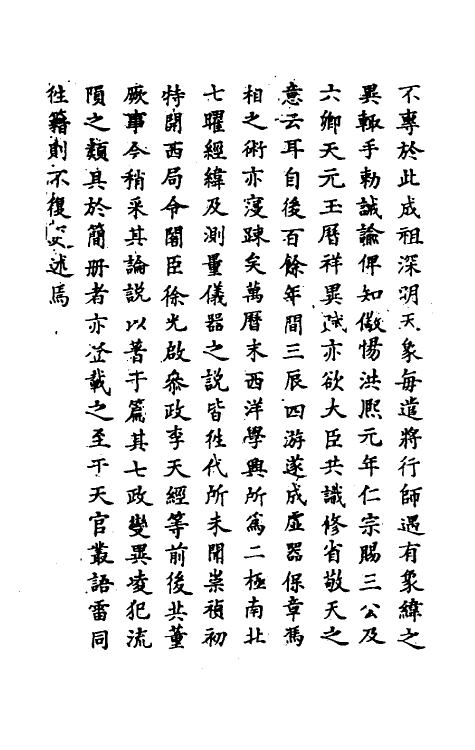 不專於此成祖深明天象每遣將行師遇有象緯之
異輙手勅誡諭俾知儆惕洪熙元年仁宗賜三公及
六卿天元玉曆祥異賦亦欲大臣共識修省敬天之
意云耳自後百餘年間三辰四游遂成虛器保章馮
相之術亦寖踈矣萬曆末西洋學興所爲二極南北
七曜經緯及測量儀器之説皆徃代所未開崇禎初
特開西局令閣臣徐光啟叅政李天經等前後共董
厥事今稍采其論説以著于篇其七政變異凌犯流
隕之類具於簡册者亦登載之至于天官叢語雷同
徃籍則不復述焉